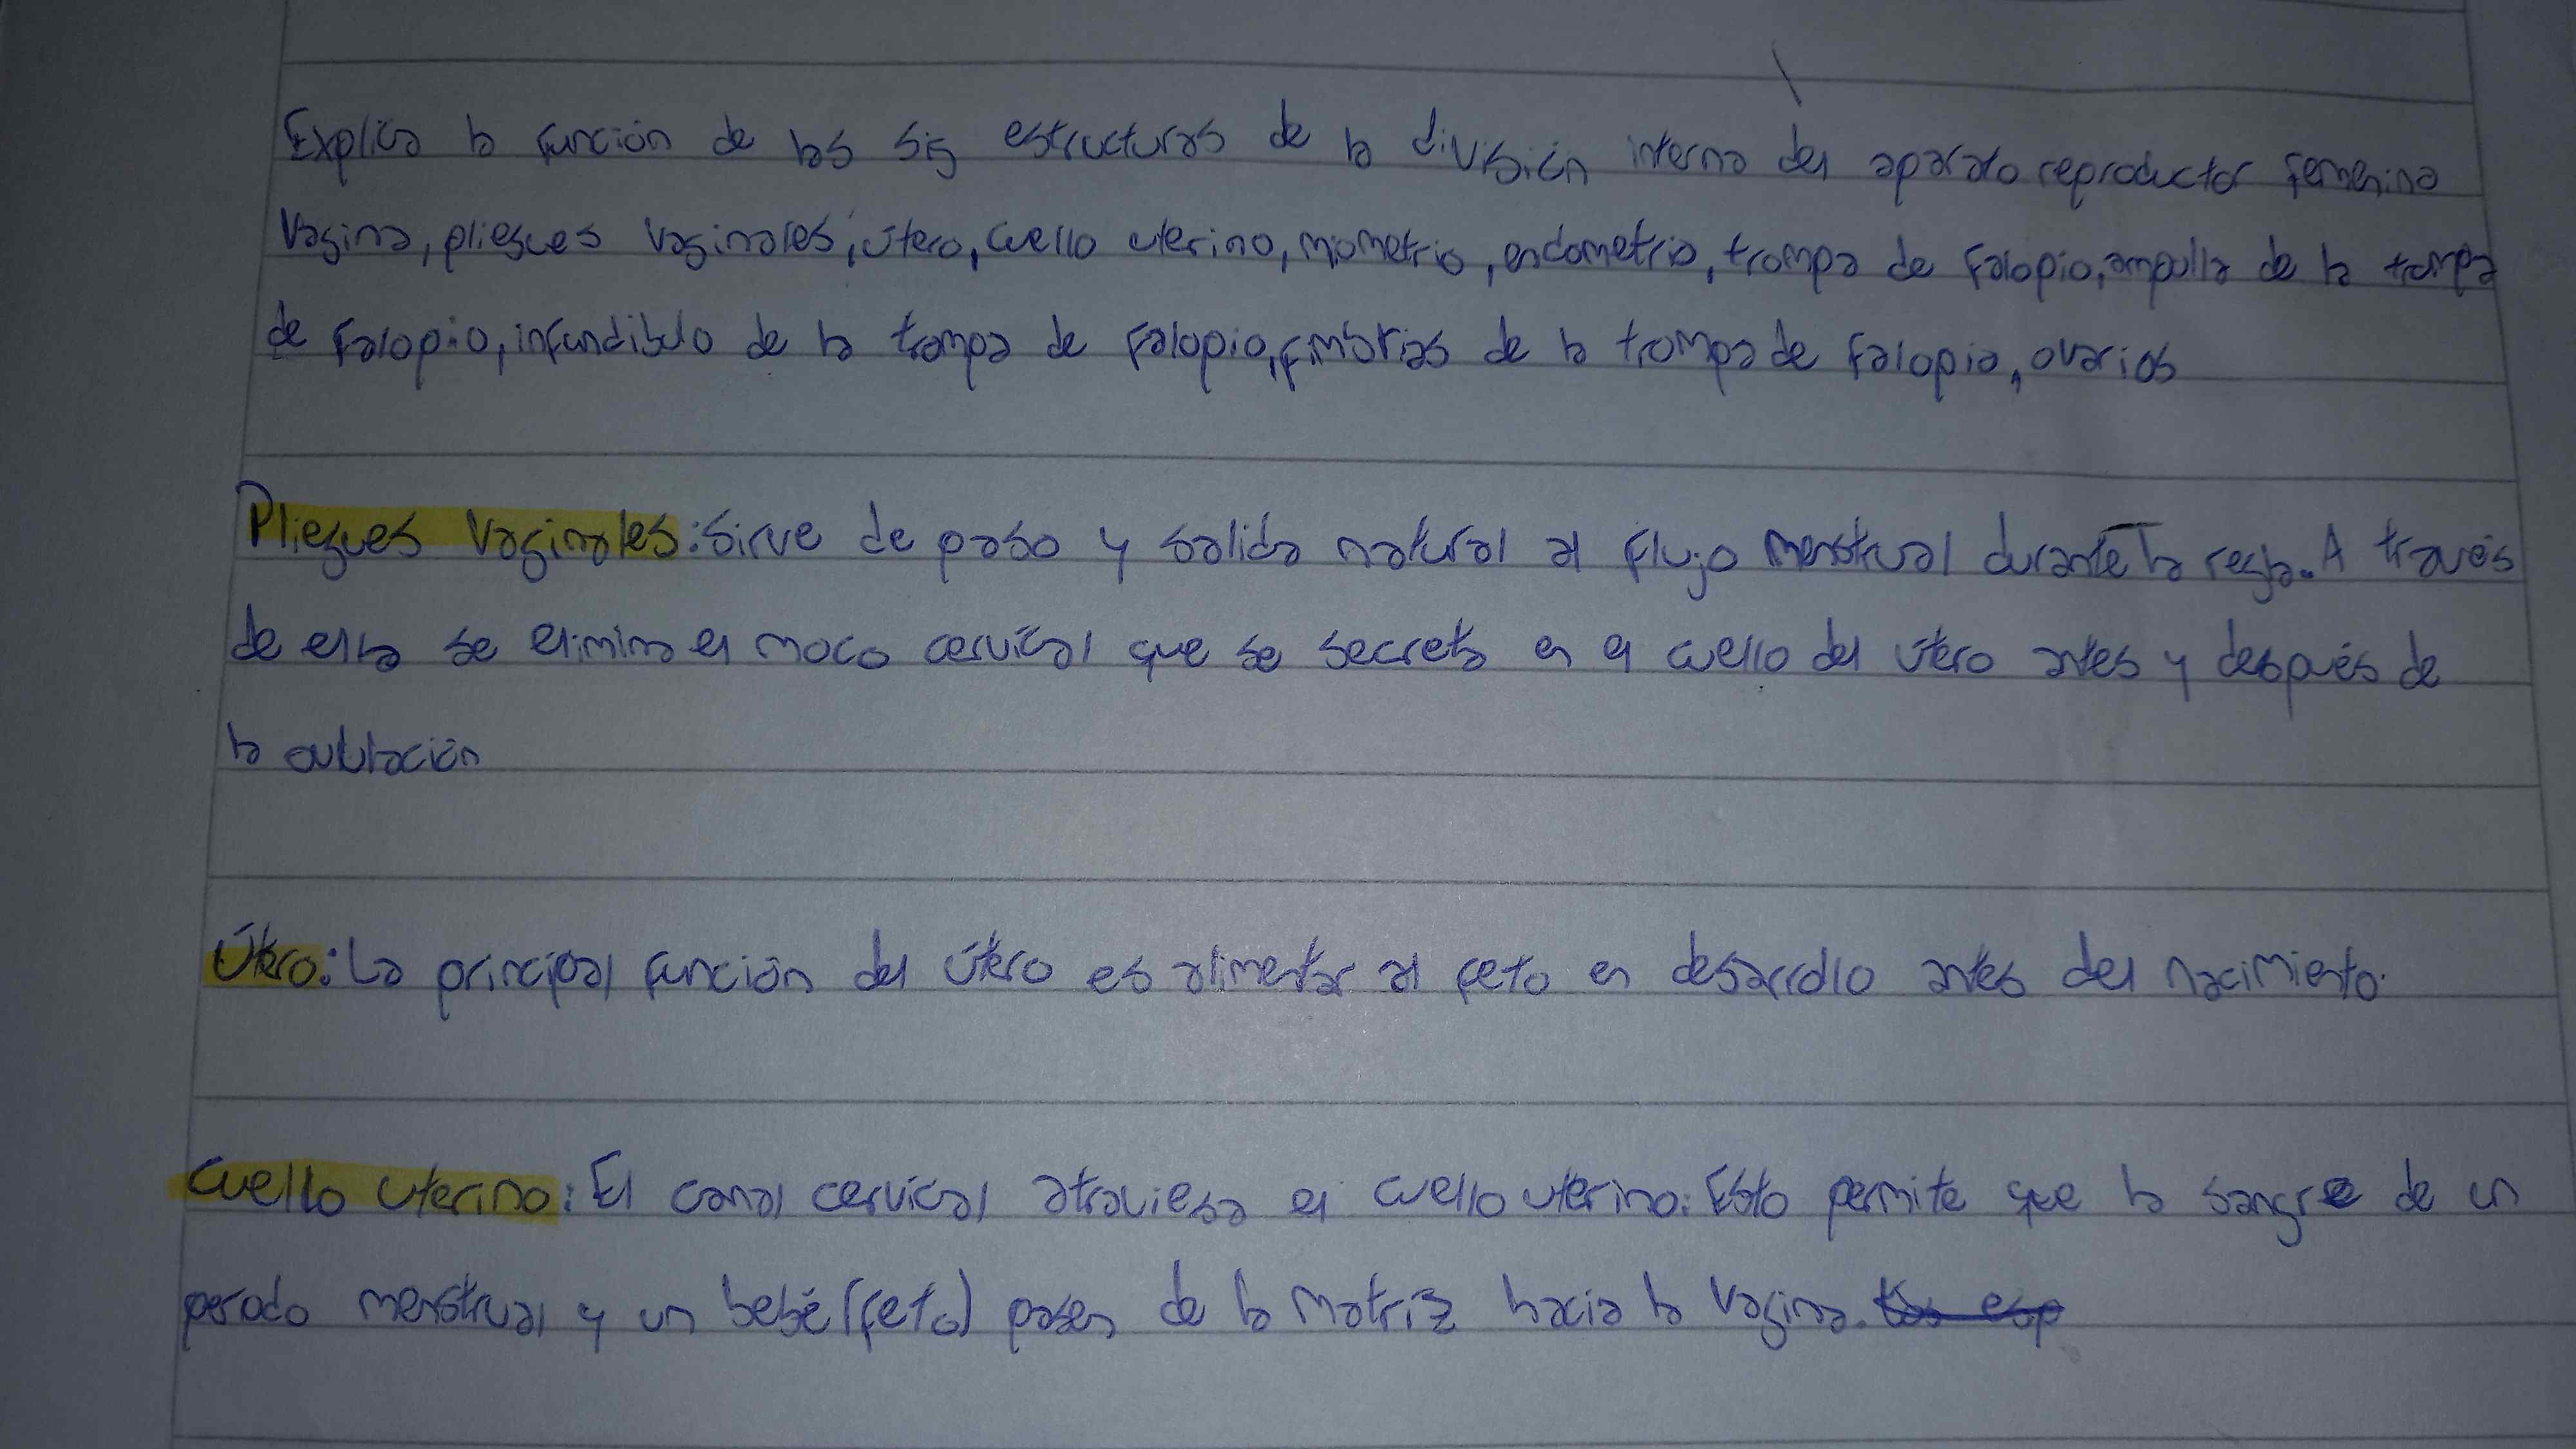 Explica la función de las sig estructuras de la división interna del aparato reproductor femenino
Vagina, pliegues vaginales, útero, cuello uterino, miometrio, endometrio, trompa de falopio, ampulla de la trompa
de falopio, infundibulo de la trompa de falopio, fimbrias de la trompa de falopio, ovarios
Pliegues vaginales: Sirve de paso y salida natural al flujo menstrual durante la regla. A través
de ella se elimina el moco cervical que se secreta en el cuello del útero antes y después de
la ovulación
Útero: La principal función del útero es alimentar al feto en desarrollo antes del nacimiento.
Cuello uterino: El canal cervical atraviesa el cuello uterino. Esto permite que la sangre de un
perodo menstrual y un bebé (feto) pasen de la matriz hacia la vagina.